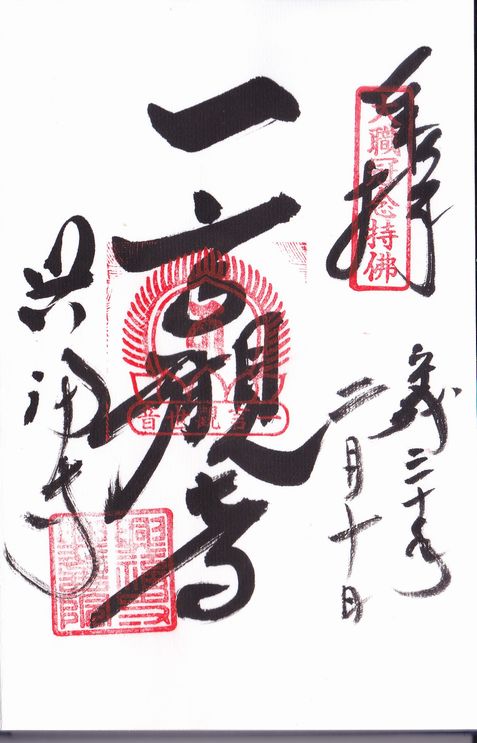 奉拝
大職冠念持佛
平成三十年
二月十日
一言観音
一言觀世音
興福寺